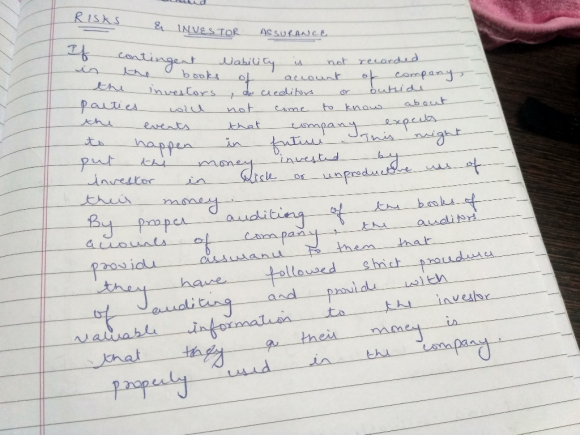 RISKS & INVESTOR ASSURANCE
If contingent liability is not recorded
in the books of account of company,
the investors, or creditors or outside
parties will not come to know about
the events that company expects
to happen in future. This might
put the money invested by
investor in Risk or unproductive use of
their money.
By proper auditing of the books of
accounts of company, the auditors
provide assurance to them that
they have followed strict procedures
of auditing and provide with
valuable information to the investor
that their money is
properly used in the company.